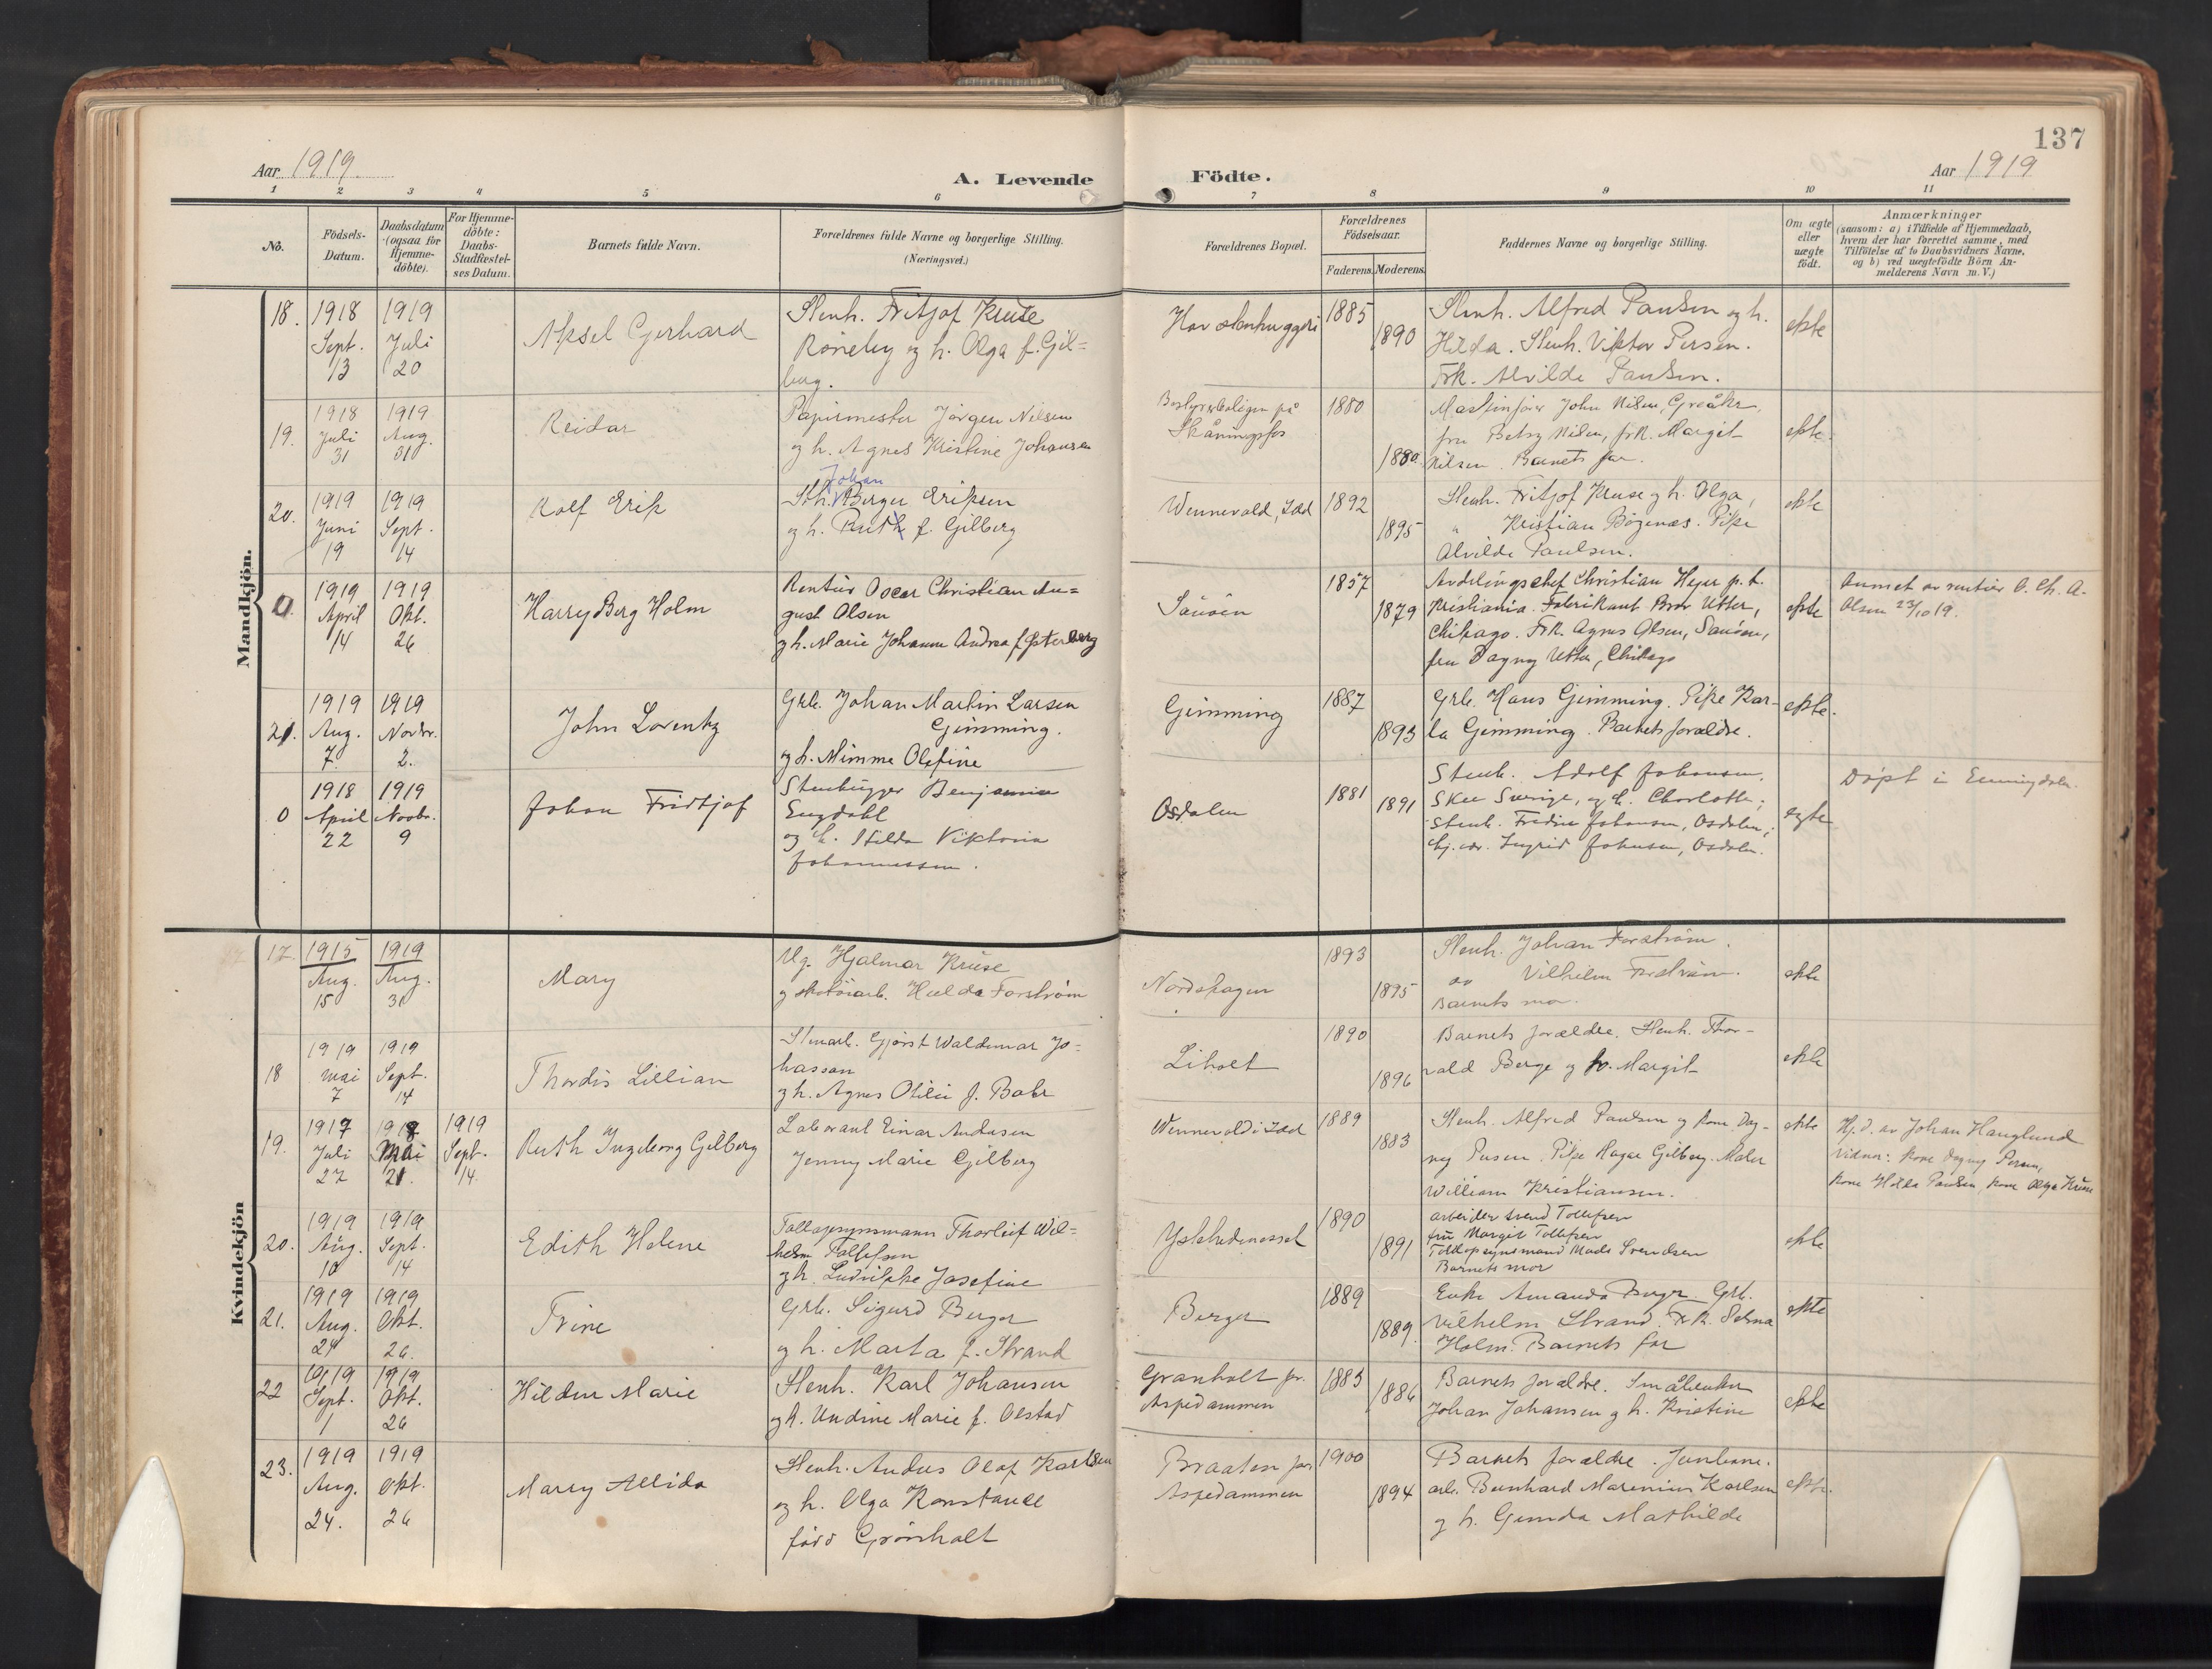 137
Aar 1919.
A. Levende Födte.
Aar 1919
1 2 3 4 5 6 7 8 9 10 11
No.
Födsels-
Datum.
Daabsdatum
(ogsaa for
Hjemme-
döbte).
For Hjemme-
döbte:
Daabs-
Stadfæstel-
ses Datum.
Barnets fulde Navn.
Forældrenes fulde Navne og borgerlige Stilling.
(Næringsvei.)
Forældrenes Bopæl.
Forældrenes
Födselsaar.
Faderens. Moderens.
Faddernes Navne og borgerlige Stilling.
Om ægte
eller
uægte
födt.
Anmærkninger
(saasom: a) i Tilfælde af Hjemmedaab,
hvem der har forrettet samme, med
Tilföielse af to Daabsvidners Navne,
og b) ved uægtefödte Börn An-
melderens Navn m. V.)
Mandkjön.
18.
1918
Sept.
13
1919
Juli
20
Aksel Gerhard
Stenh. Fritjof Kruse
Röneby og h. Olga f. Gil-
berg.
Hov stenhuggeri
1885
1890
Stenh. Alfred Paulsen og h.
Hilda. Stenh. Viktor Persen.
Frk. Alvilde Paulsen.
ekte
19.
1918
Juli
31
1919
Aug.
31
Reidar
Papirmester Jørgen Nilsen
og h. Agnes Kristine Johansen
Bestyrerboligen på
Skåningsfos
1880
1880
Maskinfører John Nilsen, Greåker,
fru Betsy Nilsen, frk. Margit
Nilsen. Barnets far.
ekte.
20.
1919
Juni
19
1919
Sept.
14
Rolf Erik
Johan
Sth. Berger Eriksen
og h. Ruth f. Gilberg
Wennevold, Idd
1892
1895
Stenh. Fritjof Kruse og h. Olga,
" Kristian Bøgenæs. Pike
Alvilde Paulsen.
ekte
0
1919
April
14
1919
Okt.
26
Harry Berg Holm
Rentier Oscar Christian Au-
gust Olsen
og h. Marie Johanne Andrea f. Østerberg
Sauöen
1857
1879
Avdelingschef Christian Heyer p. t.
Kristiania. Fabrikant Bror Utter,
Chikago. Frk. Agnes Olsen, Sauöen,
fru Dagny Utter, Chikago
ekte
Anmet av rentier O. Ch. A.
Olsen 23/10 19.
21.
1919
Aug.
7.
1919
Novbr.
2.
John Lorentz
Grb. Johan Martin Larsen
Gimming.
og h. Mimmi Olefine
Gimming
1887
1893
Grb. Hans Gimming. Pike Kar-
la Gimming. Barnets forældre.
ekte.
0
1918
April
22
1919
Novbr.
9
Johan Fridtjof
Stenhugger Benjamin
Engdahl
og h. Hilda Viktoria
Johannessen.
Osdalen
1881
1891
Stenh. Adolf Johansen,
Skee Sverige, og h. Charlotte;
Stenh. Fredin Johansen, Osdalen;
Ingrid Johansen, Osdalen.
egte
Döpt i Enningdalen.
Kvindekjön
17.
1915
Aug.
15
1919
Aug.
31
Mary
Ug. Hjalmar Kruse
og skotöiarb. Hulda Forström
Nordshagen
1893
1895
Stenh. Johan Forström.
" Vilhelm Forström.
Barnets mor.
ekte
18
1919
Mai
7
1919
Sept.
14
Thordis Lillian
Stenarb. Gjörst Waldemar Jo-
hasson
og h. Agnes Otilie f. Bohr
Liholt
1890
1896
Barnets forældre. Stenh. Thor-
vald Berge og h. Margit
ekte
19.
1917
Juli
27
1918
Mai
21.
1919
Sept.
14.
Ruth Ingeborg Gilberg
Laborant Einar Andersen
Jenny Marie Gilberg
Wennevold i Idd
1889
1883
Stenh. Alfred Paulsen og kone Dag-
ny Persen. Pike Ragna Gilberg. Maler
William Kristiansen.
ekte
Hj.d. av Johan Hauglund
Vidner: kone Dagny Persen,
kone Hilda Paulsen, kone Olga Kruse
20.
1919
Aug.
10
1919
Sept.
14
Edith Helene
Tollopsynsmann Thorleif Wil-
helm Tollefsen
og h. Ludvikke Josefine
Yslehednessel
1890
1891
arbeider Svend Tollefsen
fru Margit Tollefsen
Tollopsynsmand Mads Svendsen
Barnets mor
ekte
21.
1919
Aug.
24
1919
Okt.
26.
Trine
Grb. Sigurd Berger
og h. Marta f. Strand
Berger
1889
1889.
Enke Amanda Berger. Grb.
Vilhelm Strand. Frk. Selma
Holm. Barnets far
ekte
22
1919
Sept.
1
1919
Okt.
26
Hildur Marie
Stenh. Karl Johansen
og h. Undine Marie f. Olstad
Granholt pr.
Aspedammen
1883
1886
Barnets forældre. Småbruker
Johan Johansen og h. Kristine
ekte
23.
1919
Aug.
24.
1919
Okt.
26
Marry Allida
Stenh. Anders Olaf Karlsen
og h. Olga Konstance
född Grönholt
Braaten pr.
Aspedammen
1900
1894
Barnets forældre. Jernbane-
arb. Bernhard Marenius Karlsen
og h. Gunda Mathilde
ekte.